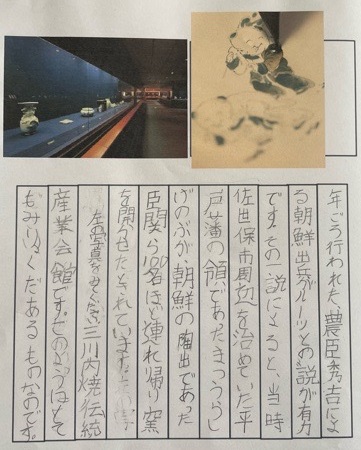 年ごろ行われた、豊臣秀吉によ
る朝鮮出兵がルーツとの説が有力
です。その一説によると、当時
佐世保市周辺を治めていた平
戸藩の領主であったまつうらし
げのぶが、朝鮮の陶出であった
臣関ら100名ほど連れ帰り窯
を開かせたとされています。
左の写真をみてください三川内焼伝統
産業会館です。そのとうきはとて
もみりょくだあるものなのです。